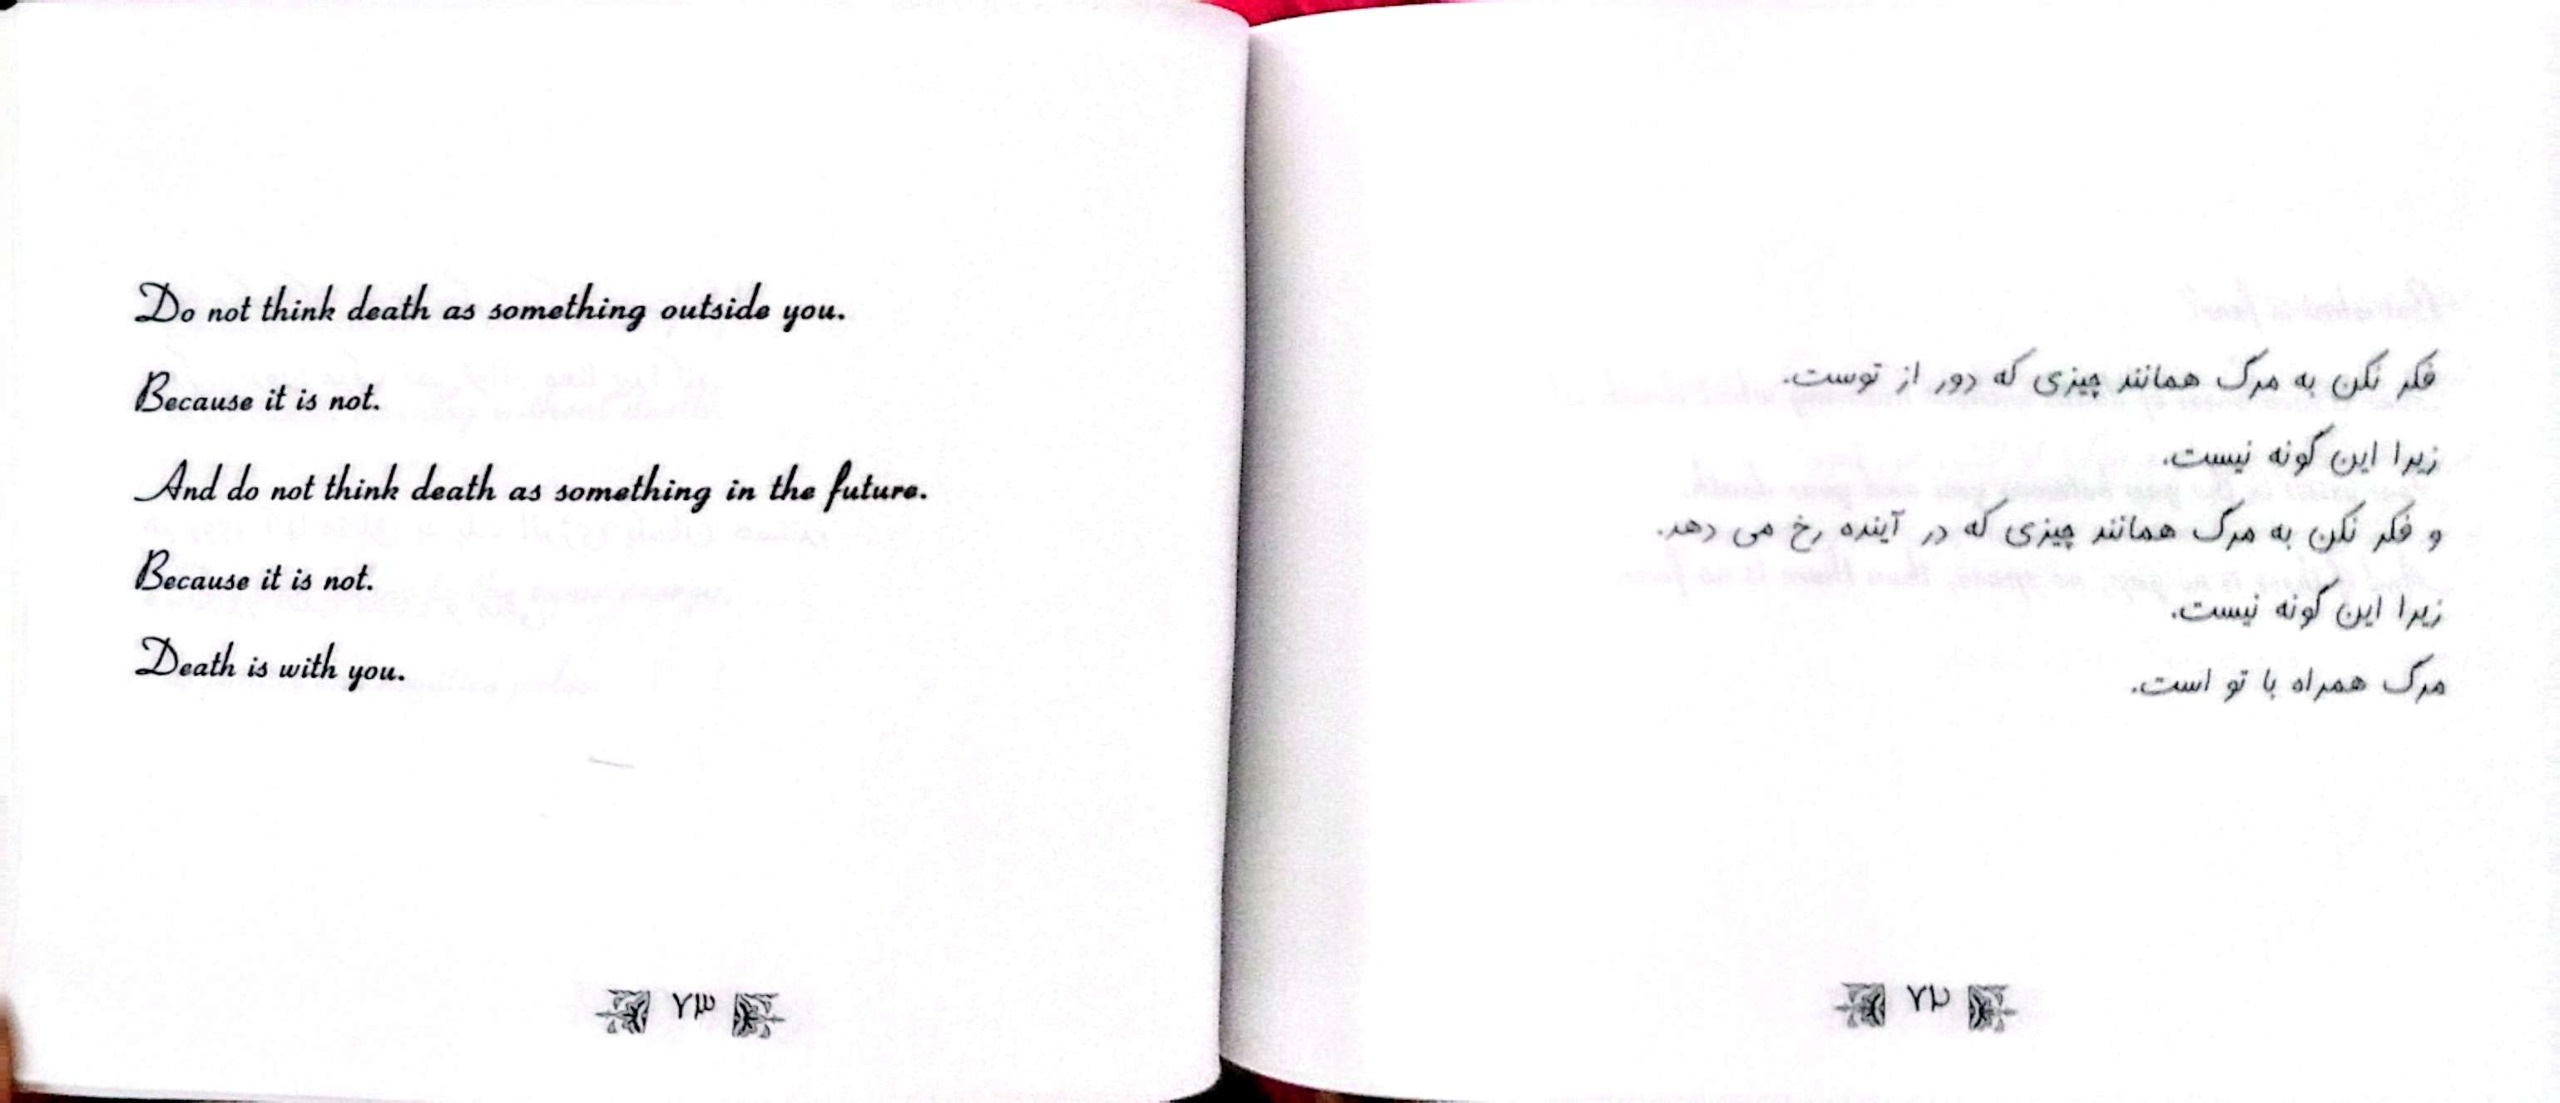 Do not think death as something outside you.
Because it is not.
And do not think death as something in the future.
Because it is not.
Death is with you.
۷۳
فکر نکن به مرگ همانند چیزی که دور از توست.
زیرا این گونه نیست.
و فکر نکن به مرگ همانند چیزی که در آینده رخ می دهد.
زیرا این گونه نیست.
مرگ همراه با تو است.
۷۲